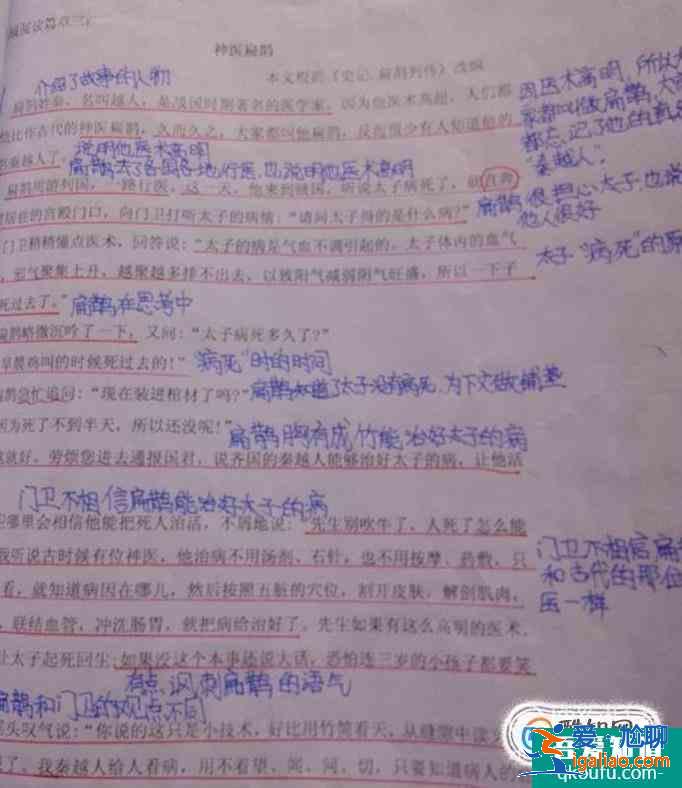 神医扁鹊
介绍了故事的人物
本文根据《史记.扁鹊列传》改编
扁鹊姓秦，名叫越人，是战国时期著名的医学家，因为他医术高超，人们都
因医术高明，所以大
家都叫做扁鹊，大
他比作古代的神医扁鹊，久而久之，大家都叫他扁鹊，反而很少有人知道他的
都忘记了他的真名
秦越人了。
说明他医术高明
"秦越人"。
扁鹊去了各国各地行医，也说明他医术高明
扁鹊周游列国，一路行医，这一天，他来到虢国，听说太子病死了，
直奔
扁鹊很担心太子，也说
居住的宫殿门口，向门卫打听太子的病情："请问太子得的是什么病？"
他人很好
门卫稍稍懂点医术，回答说："太子的病是气血不调引起的。太子体内的血气
太子"病死"的原
，邪气聚集上升，越聚越多排不出去，以致阳气减弱阴气旺盛，所以一下子
死过去了。"
扁鹊在思考中
扁鹊略微沉吟了一下，又问："太子病死多久了？"
早晨鸡叫的时候死过去的！"
"病死"时的时间
扁鹊急忙追问："现在装进棺材了吗？"
扁鹊知道了太子没有病死，为下文做铺垫
因为死了不到半天，所以还没呢！"
扁鹊胸有成竹能治好太子的病
这就好。劳烦您进去通报国君，说齐国的秦越人能够治好太子的病，让他活
门卫不相信扁鹊能治好太子的病
哪里会相信他能把死人治活，不屑地说："先生别吹牛了，人死了怎么能
门卫不相信扁
我听说古时候有位神医，他治病不用汤剂、石针，也不用按摩、药敷，只
和古代的那位
看，就知道病因在哪儿，然后按照五脏的穴位，割开皮肤，解剖肌肉，
医一样
，联结血管，冲洗肠胃，就把病给治好了。先生如果有这么高明的医术，
让太子起死回生；如果没这个本事还说大话，恐怕连三岁的小孩子都要笑
有点讽刺扁鹊的语气
扁鹊和门卫的观点不同
头叹气说："你说的这只是小技术，好比用竹管看天，从缝隙中
了。我秦越人给人看病，用不着望、闻、问、切，只要知道病人的
酷知网
爱尬聊
igaliao.com
qkoufu.com